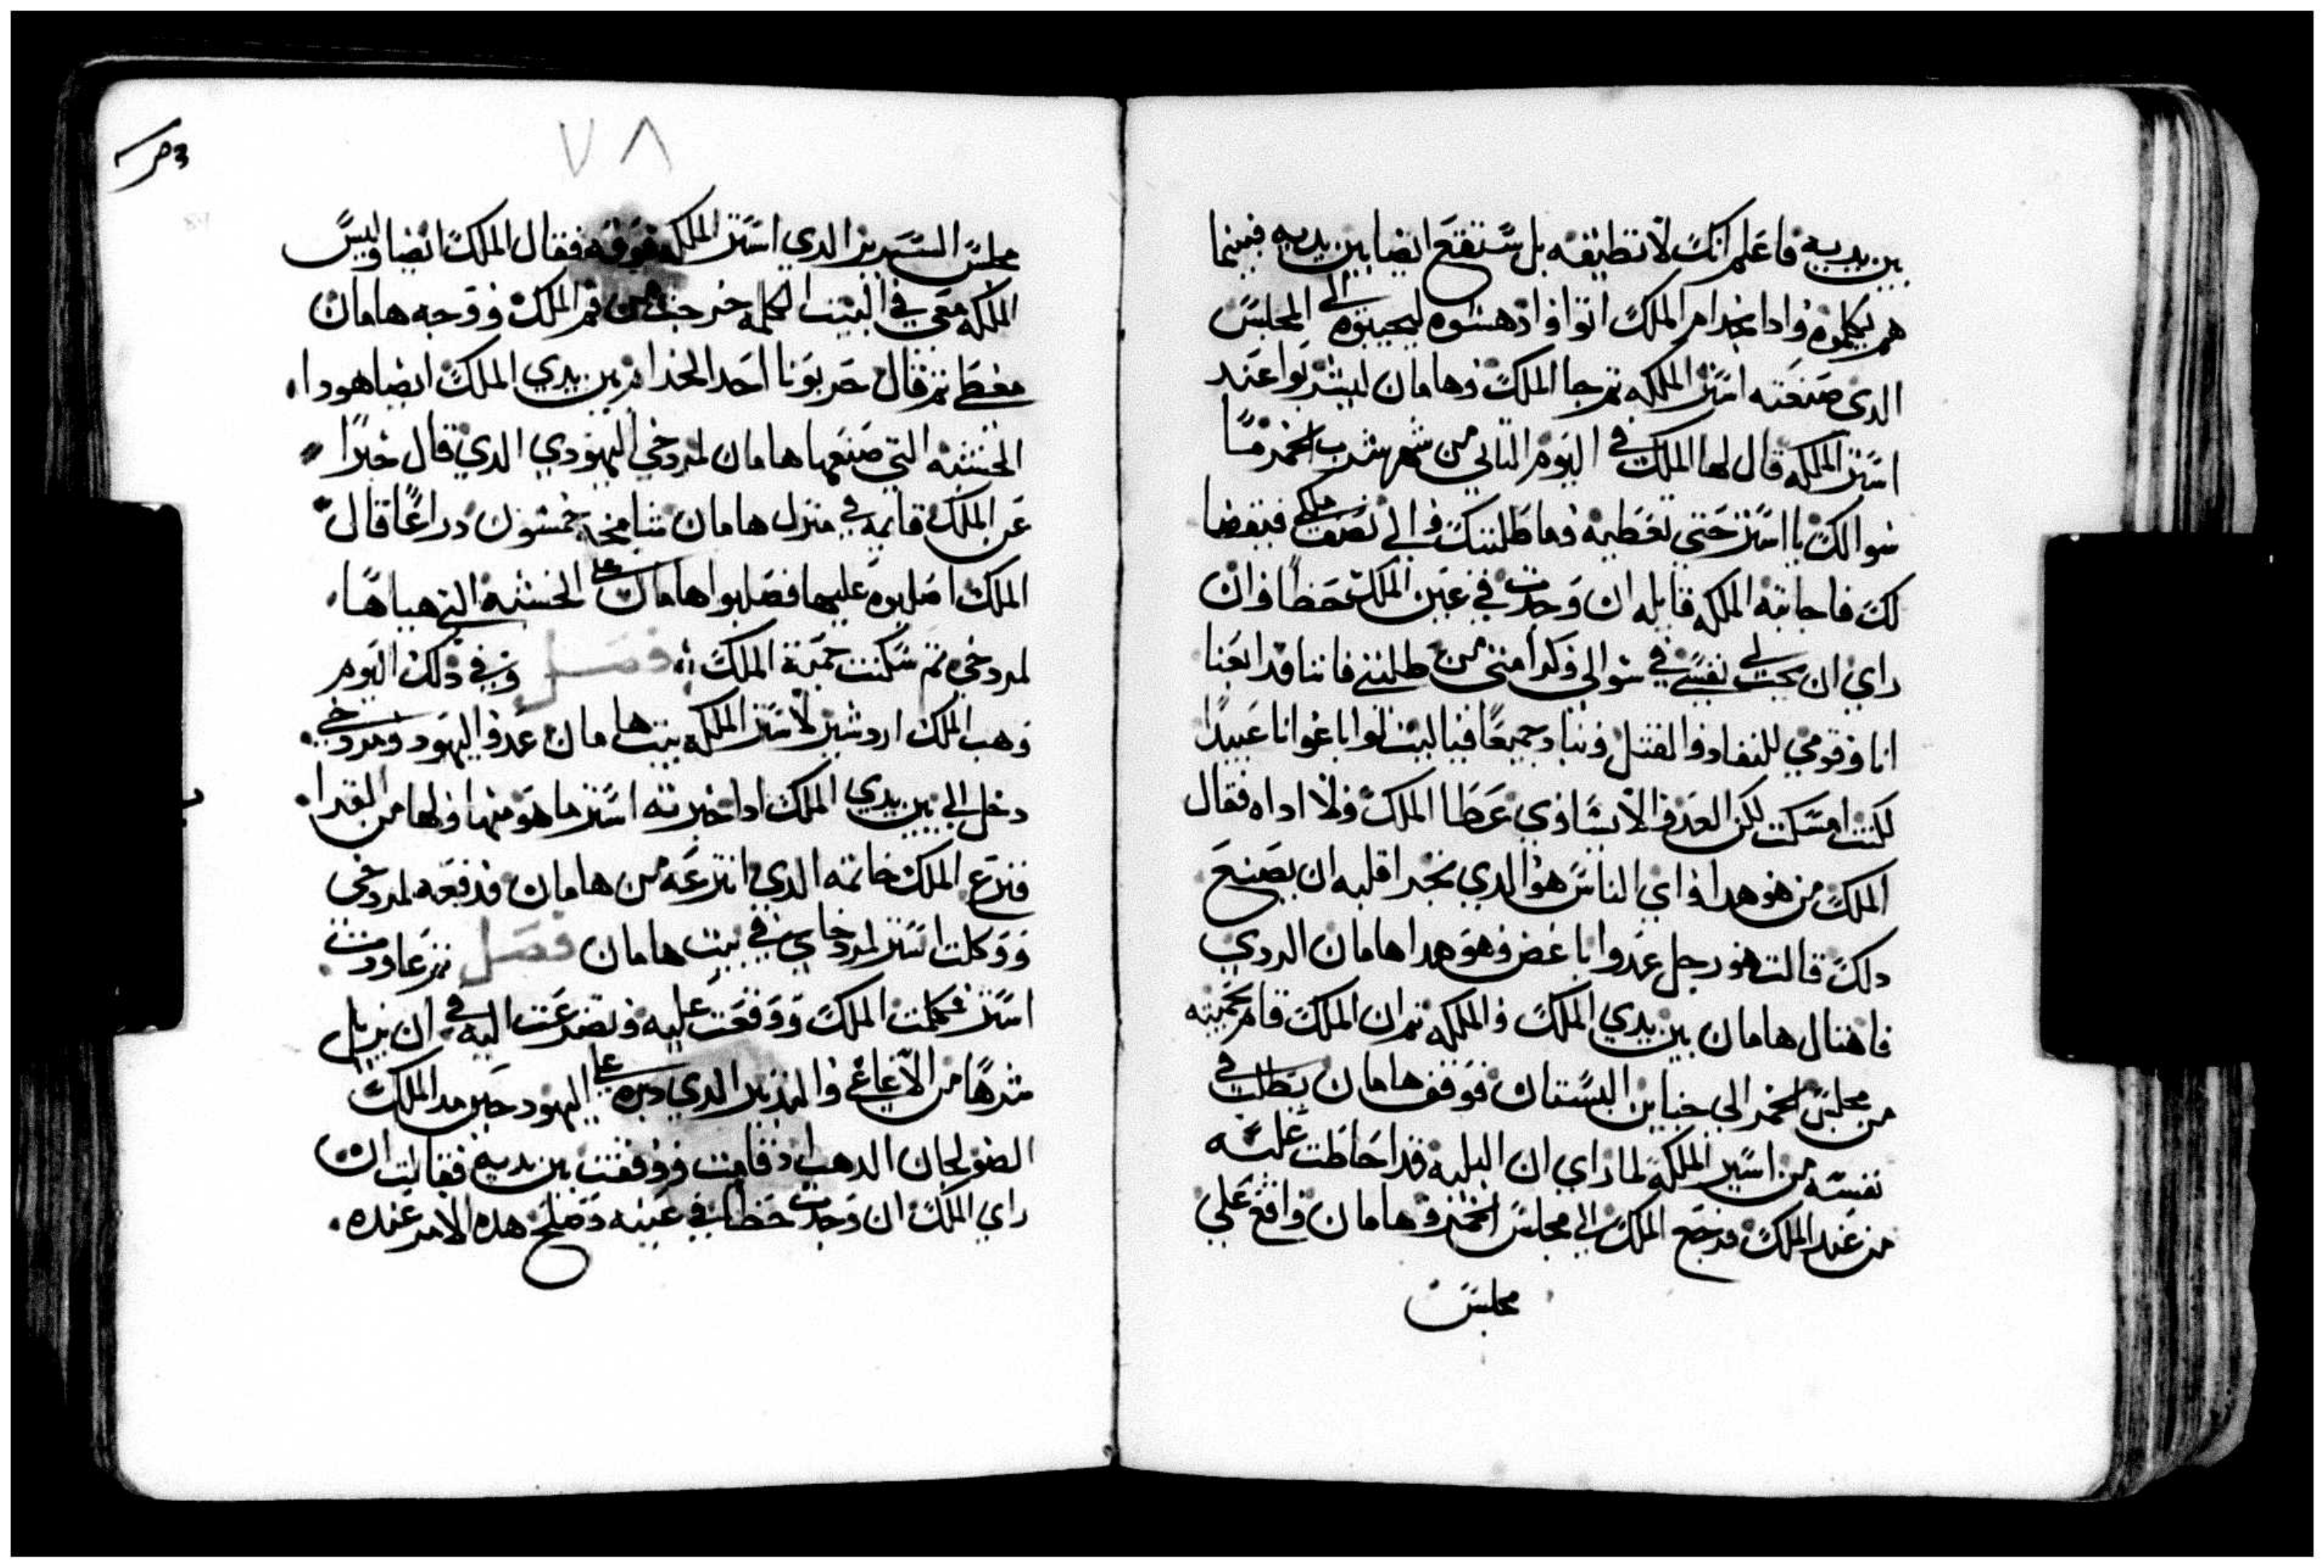 بين يديه فاعلم انك لا تطيقه بل ستقع ايضا بين يديه فبينما
هم يكلموه واذا بخدام الملك اتوا وادهشوه ليجيبوه الى المجلس
الدى صنعته استر الملكه ثم جا الملك وهامان ليشربوا عند
استر الملكه قال لها الملك في اليوم الثاني من شهر شرب الخمر
سوالك يا استر حتي تعطيه وما طلبتك والي نصف ملكي فيقضا
لك فاجابته الملكه قايله ان وجدت في عين الملك حظا وان
راي ان يحب لي نفسي في سوالي وكرامتى من طلبتي فاننا قد ابعنا
انا وقومي للنفاد والقتل ونباد جميعا فياليت لو اباعوانا عبيدا
لكنت امسكت لكن العدو لا يساوي عطا الملك ولا اداه فقال
الملك من هو هدا واي الناس هو الدي تجرا قلبه ان يصنع
دلك قالت هو رجل عدوا باغض وهو هدا هامان الردي
فاهتال هامان بين يدي الملك والملكه ثم ان الملك قام بحميته
من مجلس الخمر الي جناين البستان فوقف هامان يطلب في
نفسه من استير الملكه لما راي ان البليه قد احاطت عليه
من عند الملك فرجع الملك الي مجلس الخمر وهامان واقع علي
مجلس
٧٨
مجلس السرير الدي استر الملكه فوقه فقال الملك ايضا وليس
الملكه معي في البيت الكلمه خرجت من فم الملك ووجه هامان
مغطي ثم قال حربونا احد الخدام بين يدي الملك ايضا هودا
الخشبه التي صنعها هامان لمردخي اليهودي الدي قال خيرا
عن الملك قايمه في منزل هامان شامخه خمسون دراعا قال
الملك اصلبوه عليها فصلبوا هامان على الخشبه التي هياها
لمردخي ثم سكنت حمية الملك فصل وفي ذلك اليوم
وهب الملك اردشير لاستر الملكه بيت هامان عدو اليهود ومردخي
دخل الى بين يدي الملك ادا خبرته استر ما هو منها ولها من القرا
فنزع الملك خاتمه الدي انتزعه من هامان فدفعه لمردخى
ووكلت استر لمردخاي في بيت هامان فصل ثم عاودت
استر فكلمت الملك ووقعت عليه وتضرعت اليه في ان يزيل
شرها من الاغاغي والتدبير الدي دبره على اليهود حين مد الملك
الصولجان الدهب اد قامت ووقفت بين يديه فقالت ان
راي الملك ان وجدت حظا في عينه وصلح هده الامر عنده